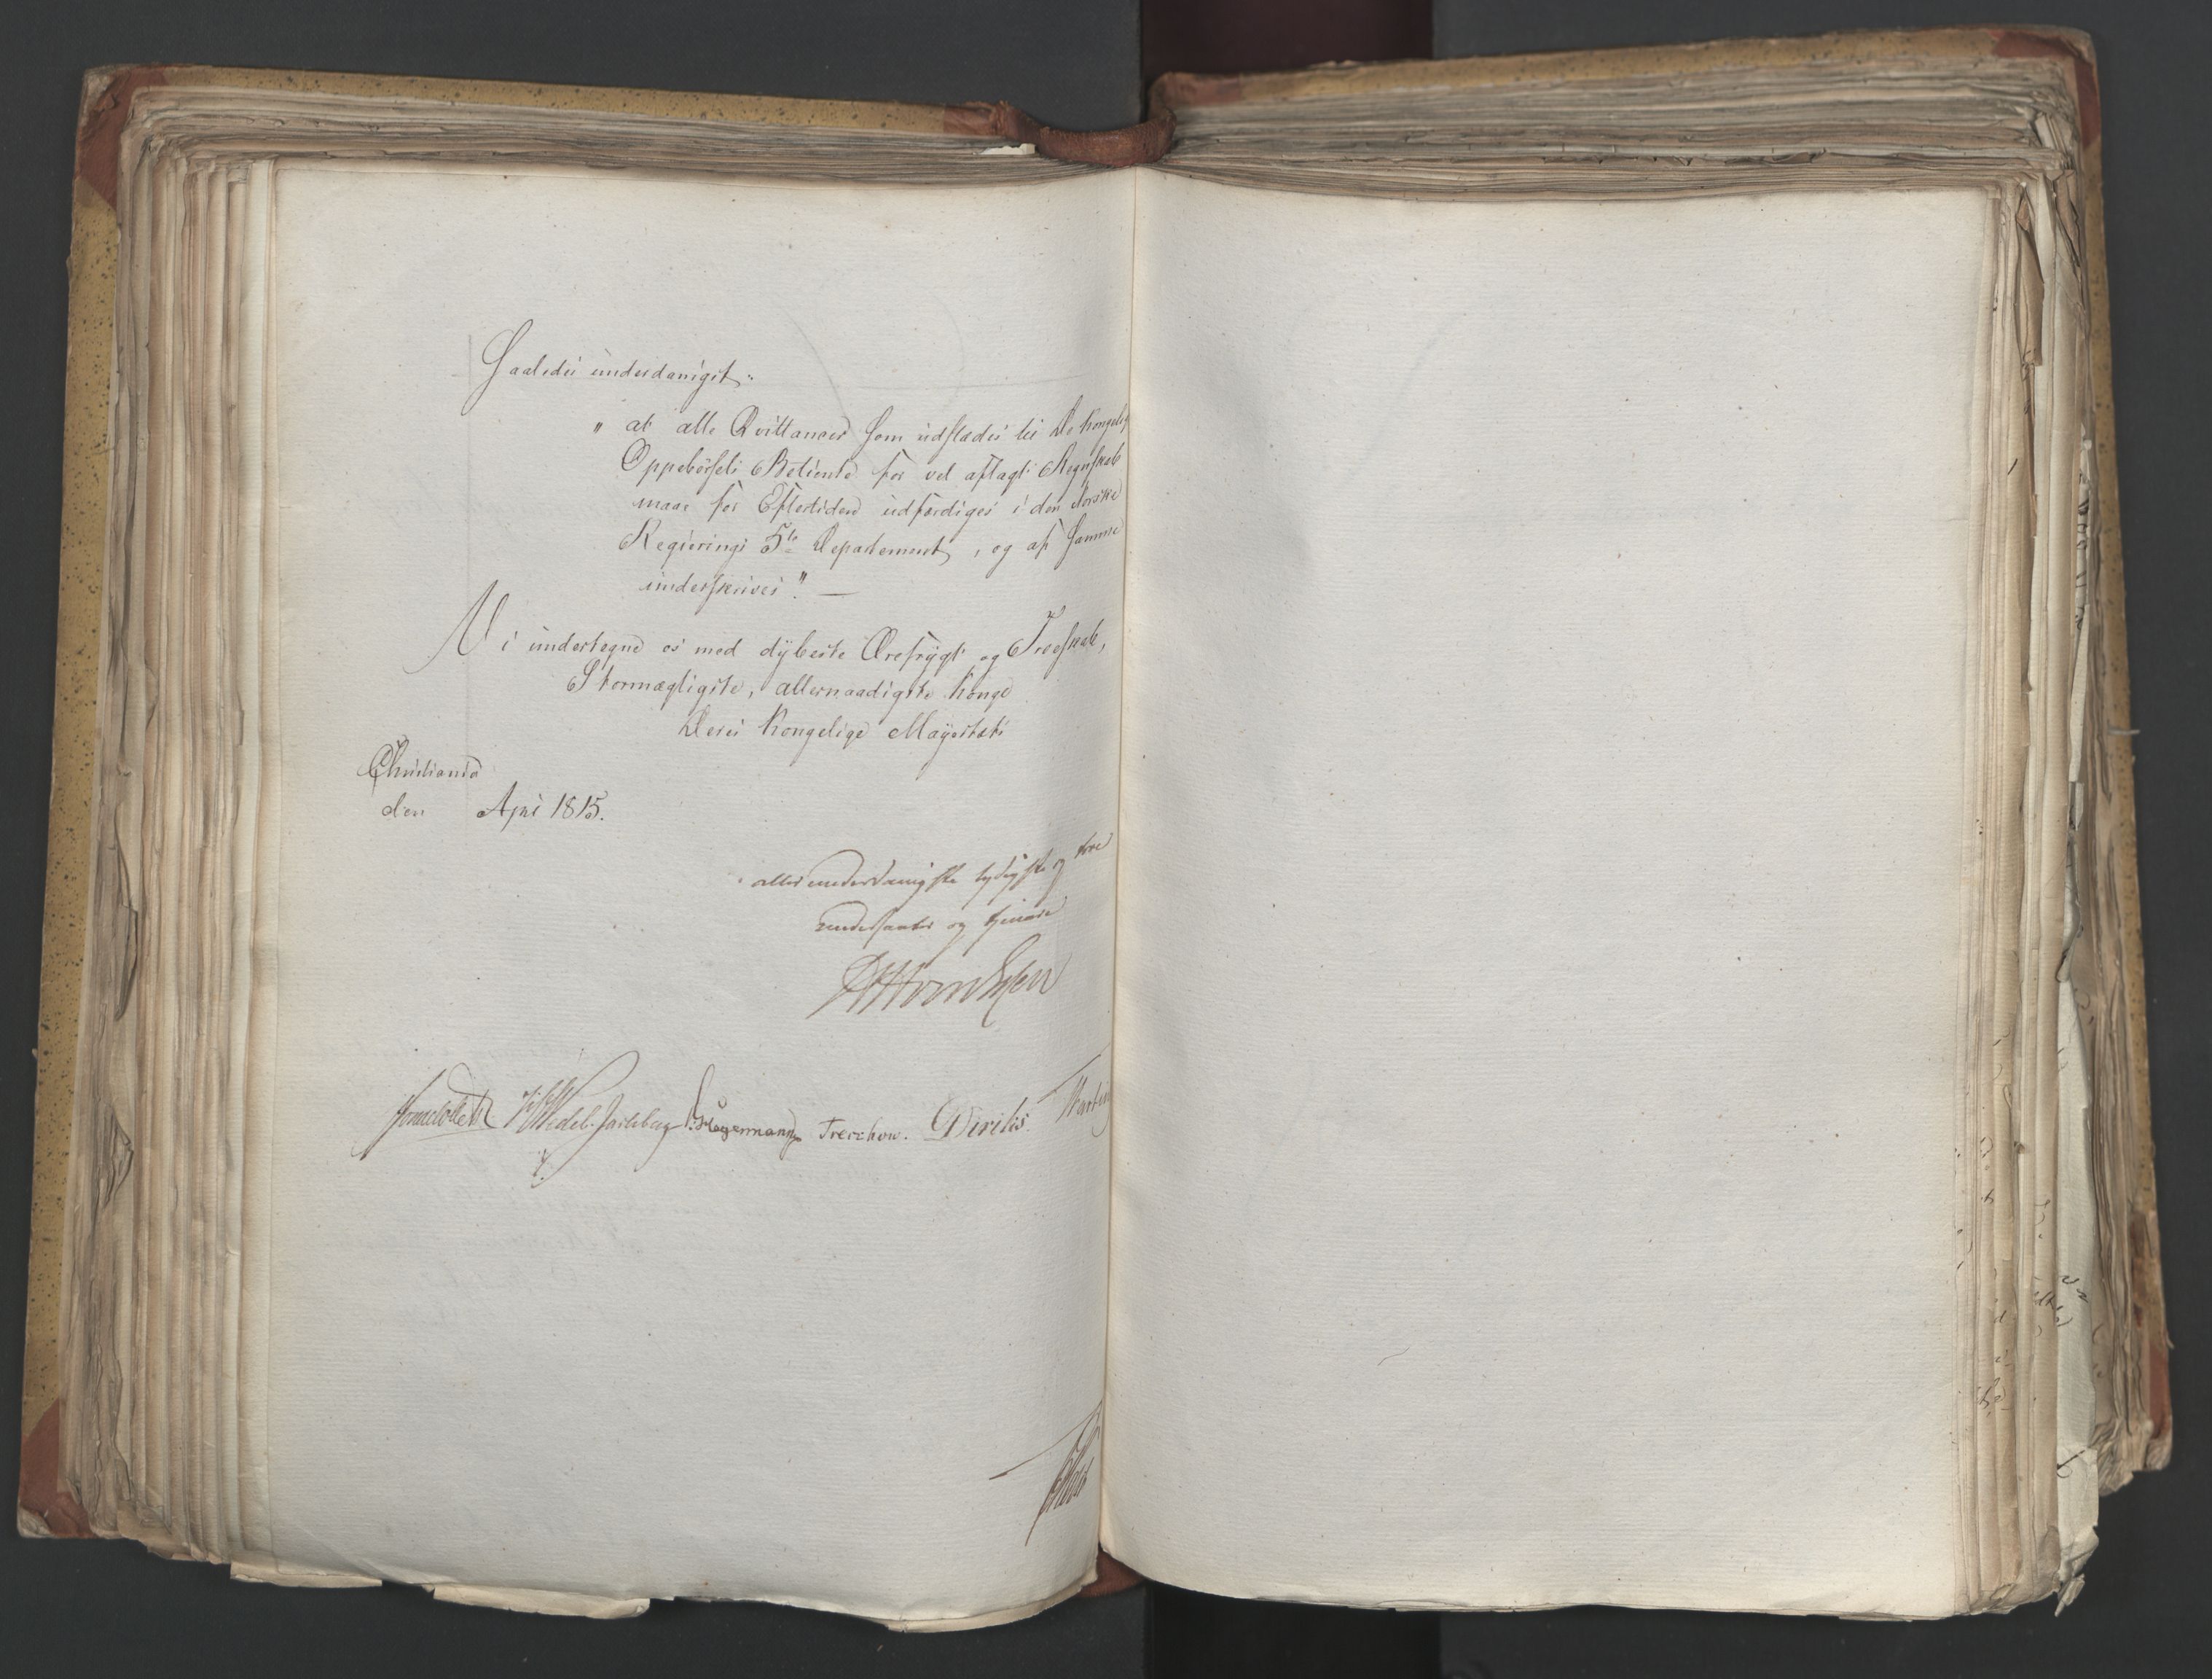 Saaledes underdanigst.
" at alle Qvittancer som udstædes til De Kongelige
Oppebörsels Betiente for vel aflagt Regnskab
maae for Eftertiden udfærdiges i den Norske
Regierings 5te Departement, og af samme
underskrives". —
Vi undertegne os med dÿbeste Ærefrÿgt og Troeskab,
Stormægtigste, allernaadigste Konge
Deres Kongelige Mayestæts
Christiania
den Apri 1815.
allerunderdanigste lydigste og troe
undersaatter og tjenere
Sommerhielm Wedel-Jarlsberg Hegermann Treschow. Diriks.
Holst